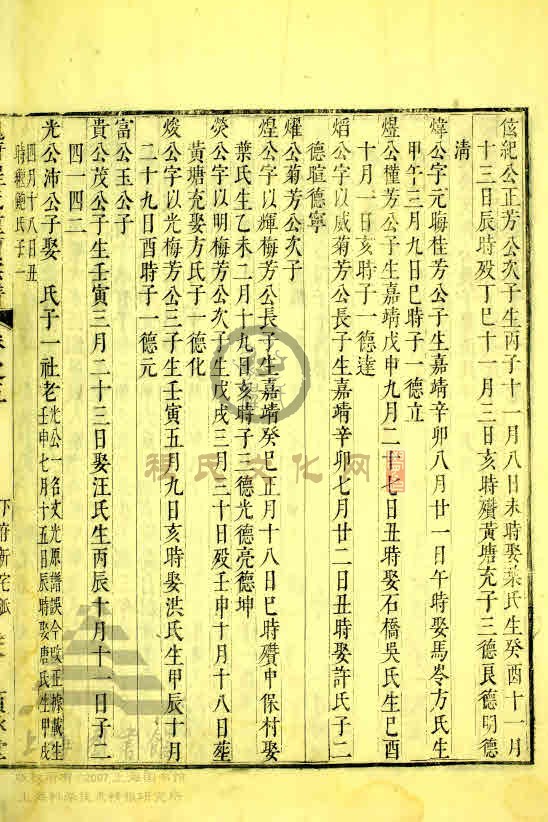 伭紀公正芳公次子生丙子十一月八日未時娶葉氏生癸酉十一月
十三日辰時殁丁巳十一月三日亥時殯黃塘充子三德良德明德
清
煒公字元晦桂芳公子生嘉靖辛卯八月廿一日午時娶馬岺方氏生
甲午三月九日巳時子一德立
煜公槿芳公子生嘉靖戊申九月二十七日丑時娶石橋吳氏生己酉
十月一日亥時子一德達
熖公字以威菊芳公長子生嘉靖辛卯七月廿二日丑時娶許氏子二
德瑄德寧
燿公菊芳公次子
煌公字以輝梅芳公長子生嘉靖癸巳正月十八日巳時殯中保村娶
葉氏生乙未二月十九日亥時子三德光德亮德坤
熒公字以明梅芳公次子生戊戌三月三十日殁壬申十月十八日𦵏
黃塘充娶方氏子一德化
焌公字以光梅芳公三子生壬寅五月九日亥時娶洪氏生甲辰十月
二十九日酉時子一德元
富公玉公子
貴公茂公子生壬寅三月二十三日娶汪氏生丙辰十月十一日子二
四一四二
光公沛公子娶 氏子一社老
光公一名文光原譜誤今改正據載生
壬申七月十五日辰時娶唐氏生甲戌
四月十八日丑
時繼鮑氏子一
下府新宅派
程氏文化网
上海图书馆
版权所有©2007上海图书馆
上海科学技术情报研究所